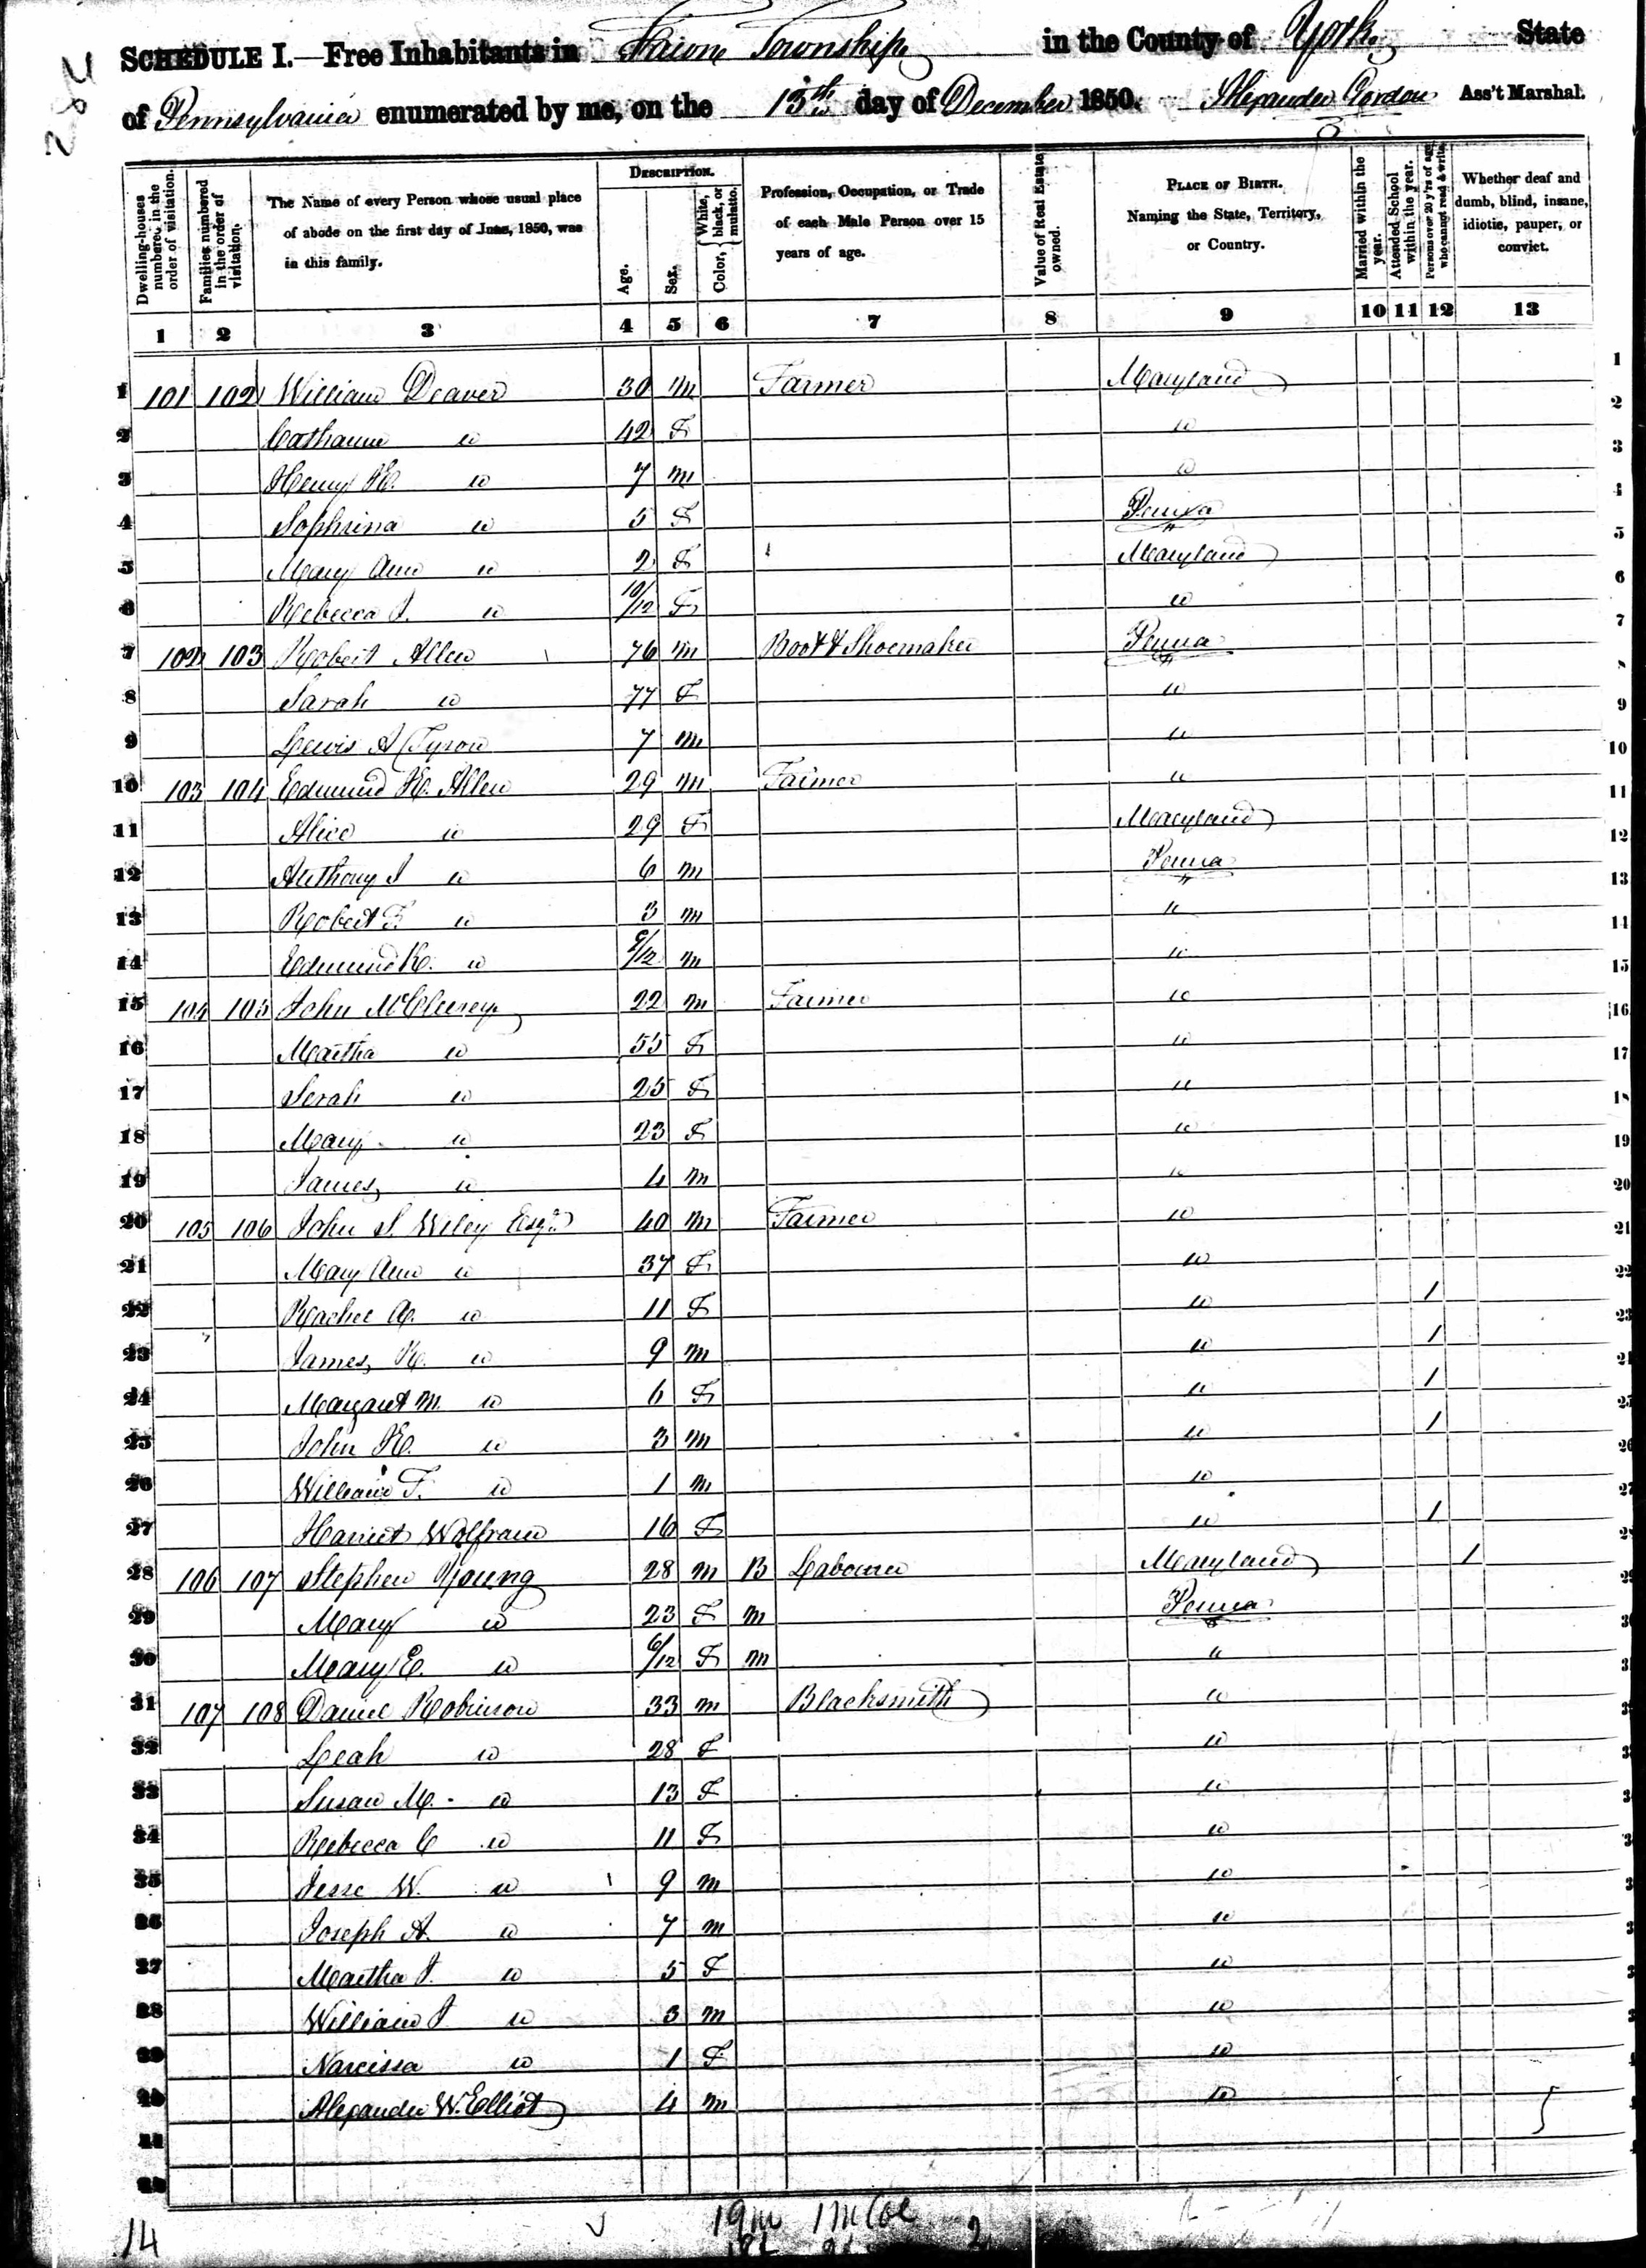 284
SCHEDULE I.—Free Inhabitants in Township in the County of York State
of Pennsylvania enumerated by me, on the 13th day of December 1850. Alexander Gordon Ass't Marshal.
Dwelling-houses numbered in the order of visitation.
Families numbered in the order of visitation.
The Name of every Person whose usual place of abode on the first day of June, 1850, was in this family.
DESCRIPTION.
Age.
Sex.
Color, { White, black, or mulatto.
Profession, Occupation, or Trade of each Male Person over 15 years of age.
Value of Real Estate owned.
PLACE OF BIRTH. Naming the State, Territory, or Country.
Married within the year.
Attended School within the year.
Persons over 20 y'rs of age who cannot read & write.
Whether deaf and dumb, blind, insane, idiotic, pauper, or convict.
1 2 3 4 5 6 7 8 9 10 11 12 13
1 101 102 William Deaver 30 m Farmer Maryland 1
2 Catharine " 42 F " 2
3 Henry H. " 7 m " 3
4 Sophrina " 5 F Penna 4
5 Mary Ann " 2 F Maryland 5
6 Rebecca J. " 10/12 F " 6
7 102 103 Robert Allen 76 m Boot & Shoemaker Penna 7
8 Sarah " 77 F " 8
9 Lewis A Tyson 7 m " 9
10 103 104 Edmund H. Allen 29 m Farmer " 10
11 Alice " 29 F Maryland 11
12 Anthony J " 6 m Penna 12
13 Robert F. " 3 m " 13
14 Edmund H. " /12 m " 14
15 104 105 John 22 m Farmer " 15
16 Martha " 55 F " 16
17 Serah " 25 F " 17
18 Mary " 23 F " 18
19 James " 4 m " 19
20 105 106 John S. Wiley Esqr. 40 m Farmer " 20
21 Mary Ann " 37 F " 21
22 Rachel A. " 11 F " 1 22
23 James R. " 9 m " 1 23
24 Margaret M. " 6 F " 1 24
25 John H. " 3 m " 1 25
26 William F. " 1 m " 26
27 Harriet Wolfram 16 F " 1 27
28 106 107 Stephen Young 28 m B Labourer Maryland 1
29 Mary " 23 F m Penna
30 Mary E. " 6/12 F m "
31 107 108 Daniel Robinson 33 m Blacksmith "
32 Leah " 28 F "
33 Susan M. " 13 F "
34 Rebecca C " 11 F "
35 Jesse W. " 9 m "
36 Joseph A. " 7 m "
37 Martha J. " 5 F "
38 William J " 3 m "
39 Narcissa " 1 F "
40 Alexander W. Elliot 4 m "
41
42
14 19m 1m Col 2